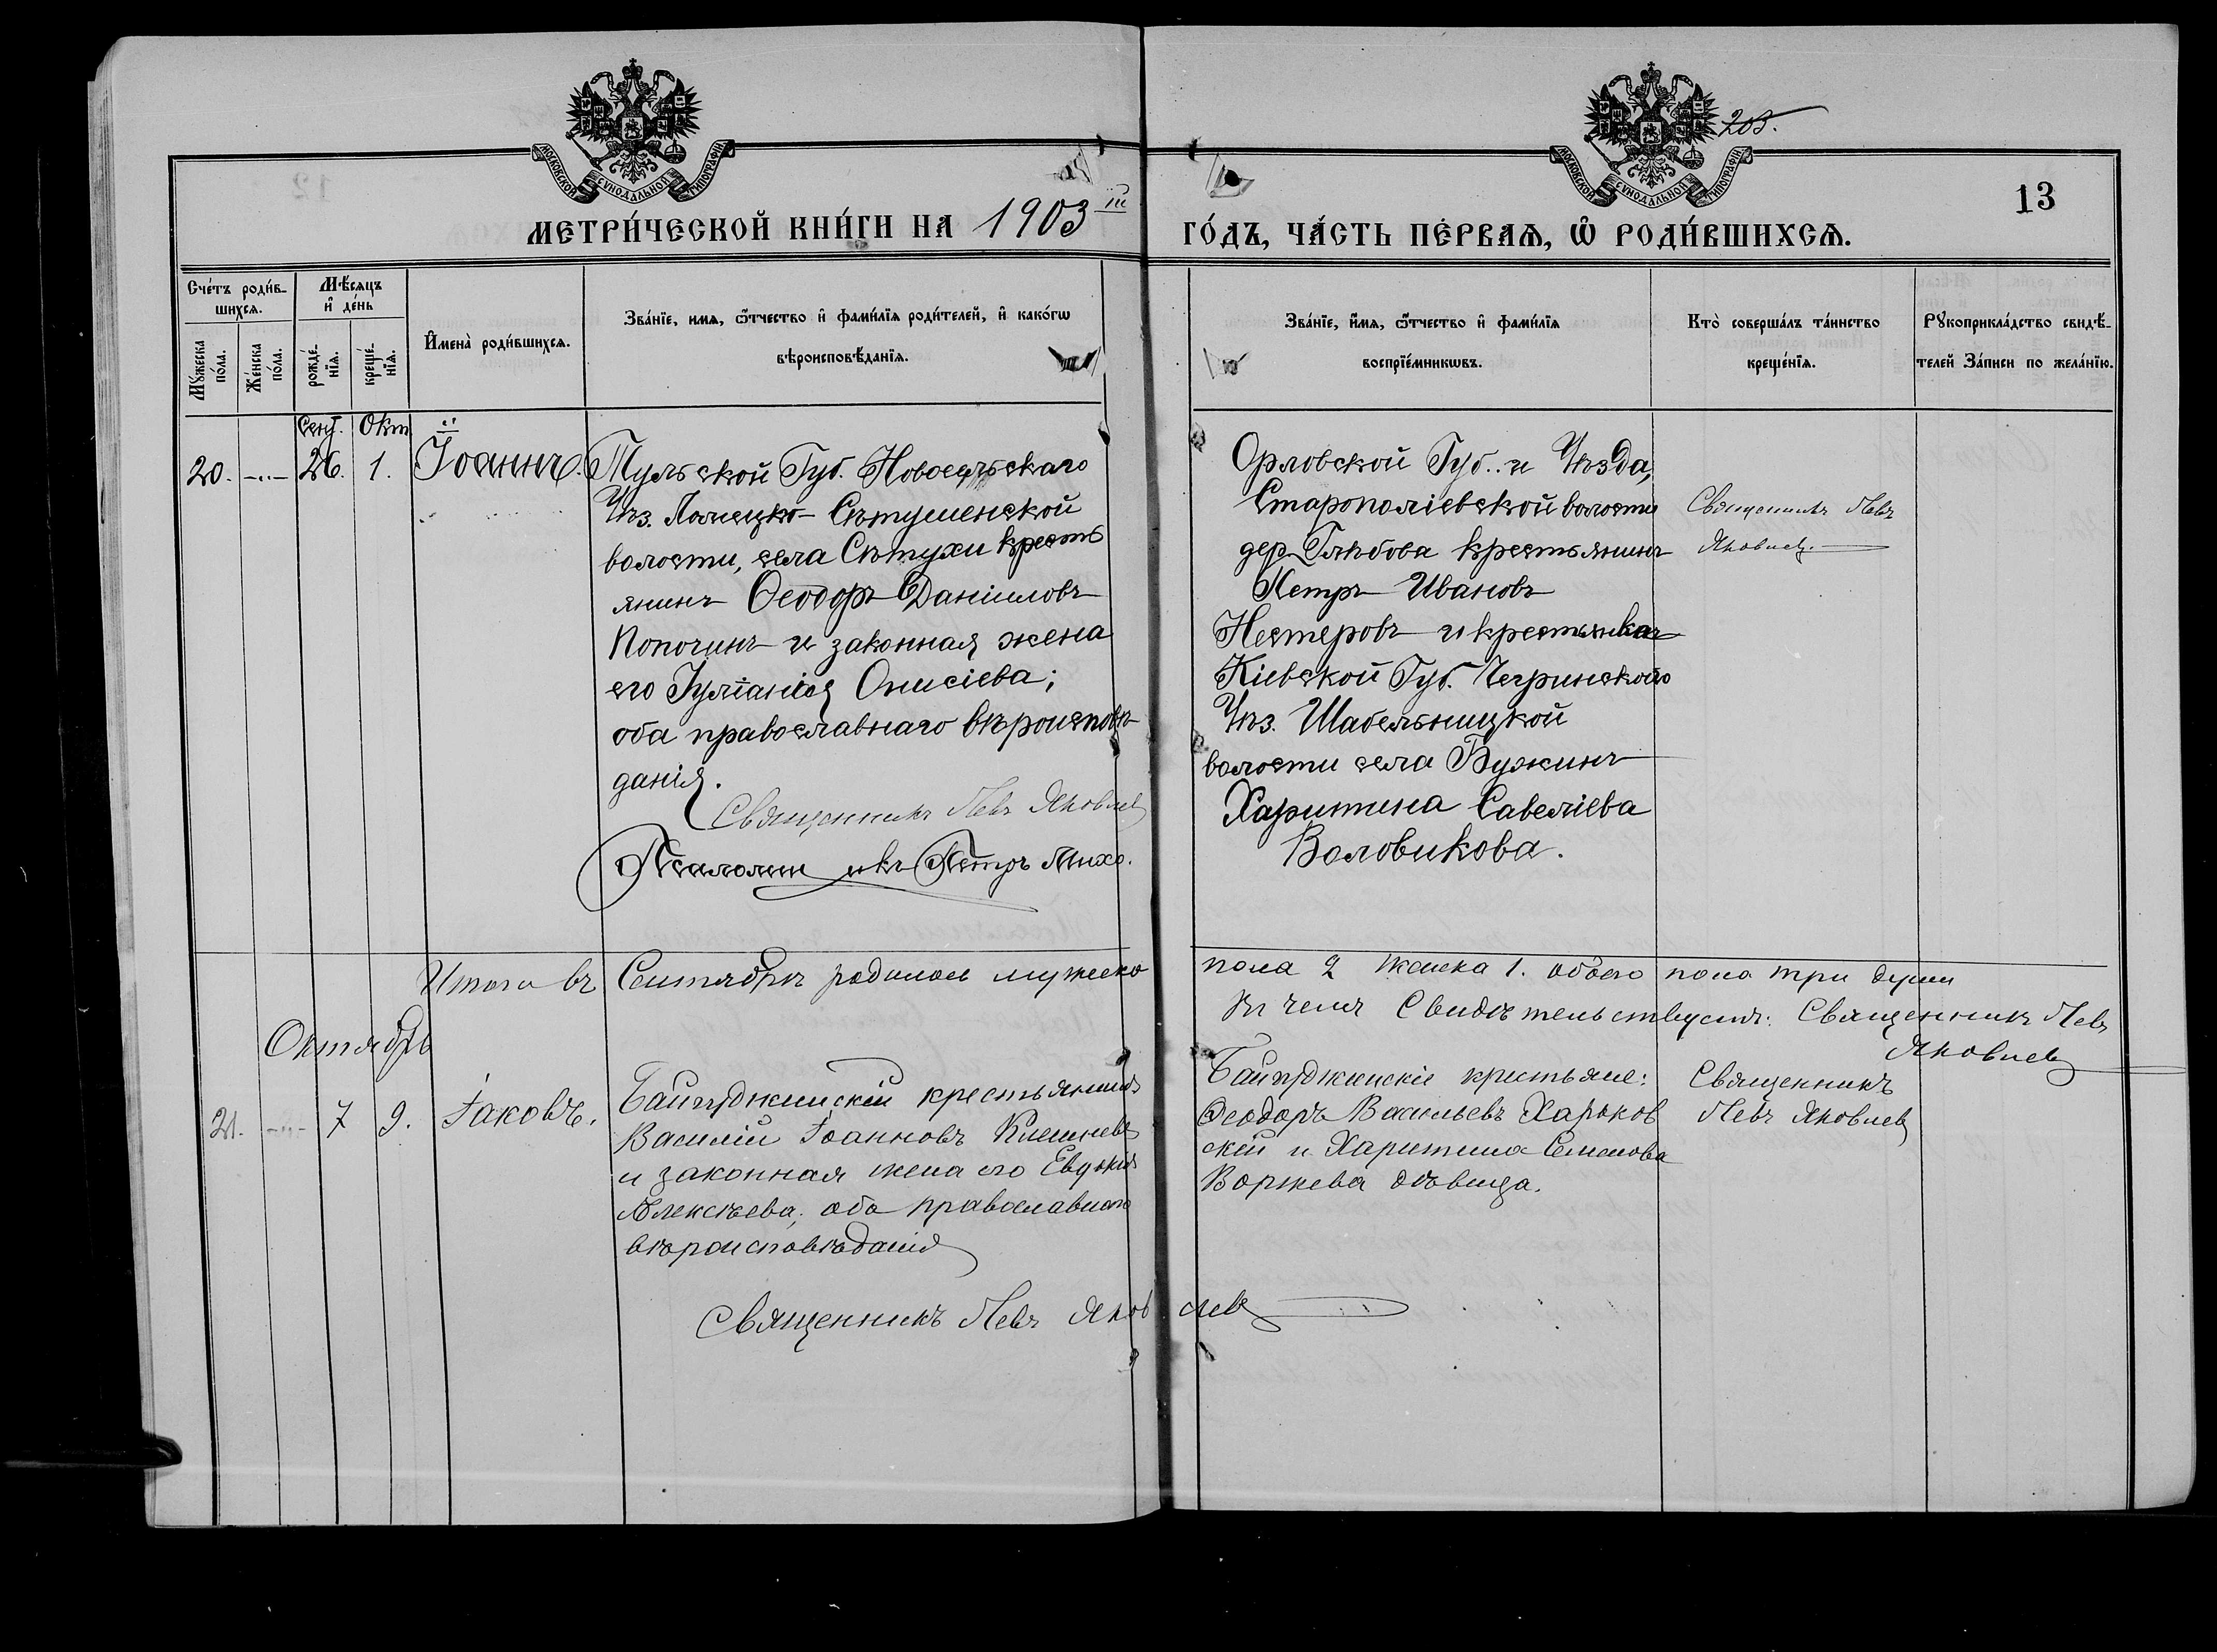 203.
МОСКОВСКОЙ СѴНОДАЛЬНОЙ ТИПОГРАФІИ
МОСКОВСКОЙ СѴНОДАЛЬНОЙ ТИПОГРАФІИ
13
МЕТРИ́ЧЕСКОЙ КНИ́ГИ НА 1903 ій
ГО́ДЪ, ЧА́СТЬ ПЕ́РВАѦ, Ѡ РОДИ́ВШИХСѦ.
Сче́тъ роди́в-
шихсѧ.
Мꙋ́жеска по́ла.
Же́нска по́ла.
Мѣ́сѧцъ
и҆ де́нь
рожде́-
нїѧ.
креще́-
нїѧ.
И҆мена̀ роди́вшихсѧ.
Зва́нїе, имѧ, ѻ҆́тчество и҆ фами́лїѧ роди́телей, и҆ како́гѡ
вѣроисповѣ́данїѧ.
Зва́нїе, и҆́мѧ, ѻ҆́тчество и҆ фами́лїѧ
воспрїе́мникѡвъ.
Кто̀ соверша́лъ та́инство
креще́нїѧ.
Рꙋкоприкла́дство свидѣ́-
телей За́писи по жела́нїю.
Сент. Окт
20. -"- 26. 1. Іоаннъ.
Тульской Губ. Новосильскаго
Уѣз. Сѣтушенской
волости, села Сѣтухи кресть
янинъ Ѳеодоръ Даніиловъ
Попочинъ и законная жена
его Іуліанія Онисіева;
оба православнаго вѣроисповѣ-
данія.
Священникъ Левъ Яковлев
Псаломщикъ Петръ Михо.
Орловской Губ. и Уѣзда,
Старополіевской волости
дер. Глѣбова крестьянинъ
Петръ Ивановъ
Нестеровъ и крестьянка
Кіевской Губ. Чегринского
Уѣз. Шабельницкой
волости села Бужинъ
Харитина Савеліева
Воловикова.
Священникъ Левъ
Яковлев
Итого въ Сентябрѣ родилось мужеско
пола 2 женска 1. обоего пола три души
въ чемъ Свидѣтельствуемъ: Священникъ Левъ
Яковлев
Октябрь
21. -"- 7 9. Іаковъ.
Байгуджинскій крестьянинъ
Василій Іоанновъ Клешневъ
и законная жена его Евдокія
Алексѣева; оба православнаго
вѣроисповѣданія
Священникъ Левъ Яковлев
Байгуджинскіе крестьяне:
Ѳеодоръ Васильевъ Харьков
скій и Харитина Семенова
Воржева дѣвица.
Священникъ
Левъ Яковлев